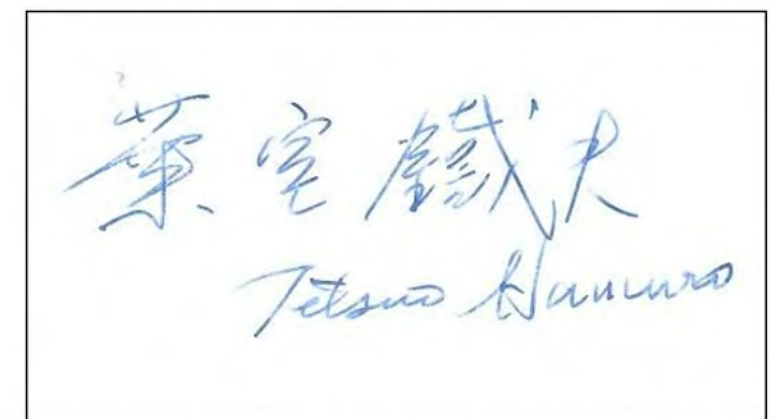 葉室鐵夫
Tetsuo Hamuro